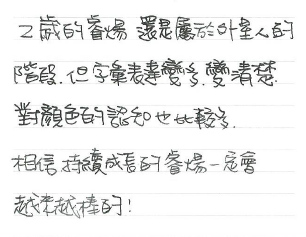 2歲的睿煬 還是屬於外星人的
階段.但字彙表達變多.變清楚.
對顏色的認知也比較多.
相信持續成長的睿煬一定會
越來越棒的!